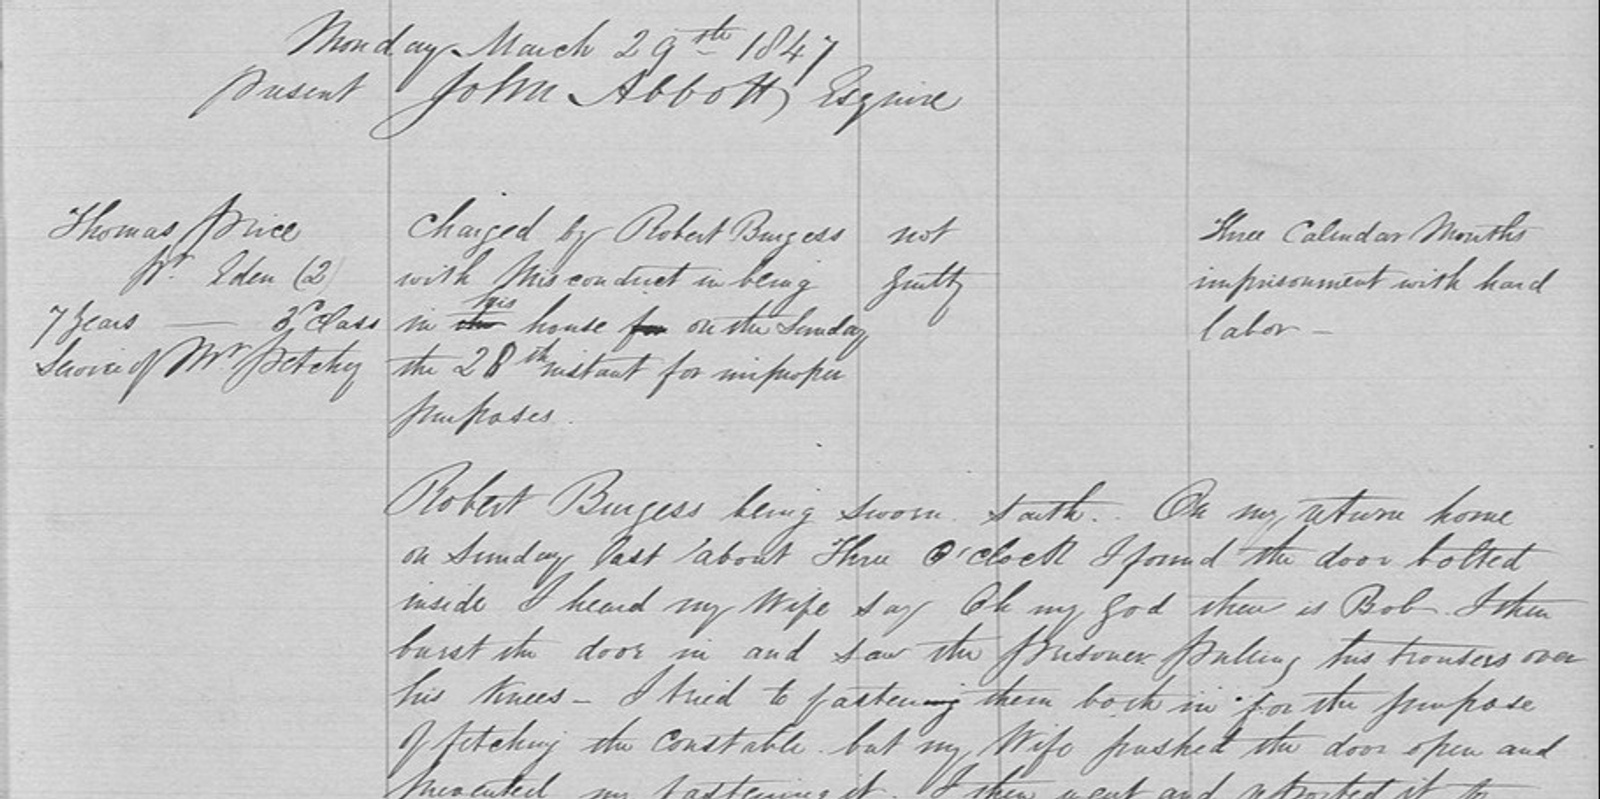 Monday March 29th 1847
Present John Abbott Esquire
Thomas Price
pr. Eden (2)
7 Years — 3rd Class
Service of Mr Petchey
Charged by Robert Burgess
with Misconduct in being
in the his house for on the Sunday
the 28th instant for improper
purposes.
not
guilty
Three Calendar Months
imprisonment with hard
labor —
Robert Burgess being sworn saith. On my return home
on Sunday last about Three O'clock I found the door bolted
inside I heard my Wife say Oh my god there is Bob. I then
burst the door in and saw the prisoner pulling his trousers over
his knees – I tried to fastening them both in for the purpose
of fetching the Constable but my Wife pushed the door open and
prevented my fastening it. I then went and reported it to